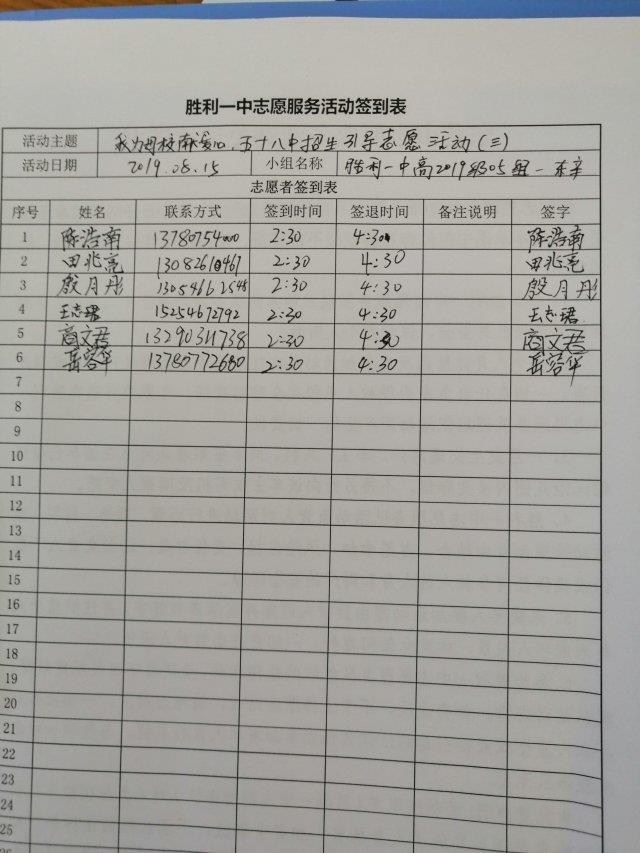 胜利一中志愿服务活动签到表
活动主题 我为母校献爱心,五十八中招生引导志愿活动(三)
活动日期 2019.08.15 小组名称 胜利一中高2019级05组一东辛
志愿者签到表
序号 姓名 联系方式 签到时间 签退时间 备注说明 签字
1 陈浩南 13780754000 2:30 4:30 陈浩南
2 田兆亮 13082610467 2:30 4:30 田兆亮
3 殷月彤 13054662548 2:30 4:30 殷月彤
4 王志珺 15254672792 2:30 4:30 王志珺
5 商文君 13290311738 2:30 4:30 商文君
6 岳蓉华 13780772680 2:30 4:30 岳蓉华
7
8
9
10
11
12
13
14
15
16
17
18
19
20
21
22
23
24
25